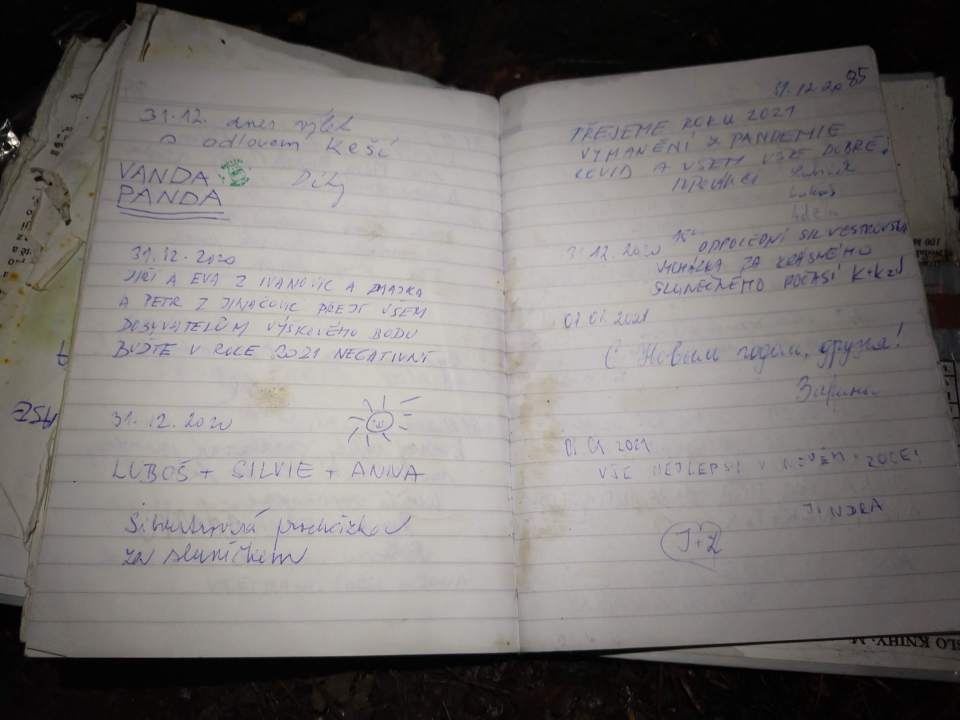 31.12. dnes výlet
s odlovem keší
VANDA
PANDA
Díky
31.12.2020
JIŘÍ A EVA Z IVANOVIC A
A PETR Z JINAČOVIC PŘEJÍ VŠEM
DOBYVATELŮM VÝŠKOVÉHO BODU
BUĎTE V ROCE 2021 NEGATIVNÍ
31.12.2020
LUBOŠ + SILVIE + ANNA
Silvestrovská procházka
za sluníčkem
85
31.12.20
PŘEJEME ROKU 2021
VYMANĚNÍ Z PANDEMIE
COVID A VŠEM VŠE DOBRÉ.
Lukáš
Adéla
31.12.2020 ODPOLEDNÍ SILVESTROVSKÁ
VYCHÁZKA ZA KRÁSNÉHO
SLUNEČNÉHO POČASÍ K+K
01.01.2021
С Новым годом, друзья!
Зарина
01.01.2021
VŠE NEJLEPŠÍ V NOVÉM ROCE!
JINDRA
J+Z
ASZ
100
SLO KNIHY: M